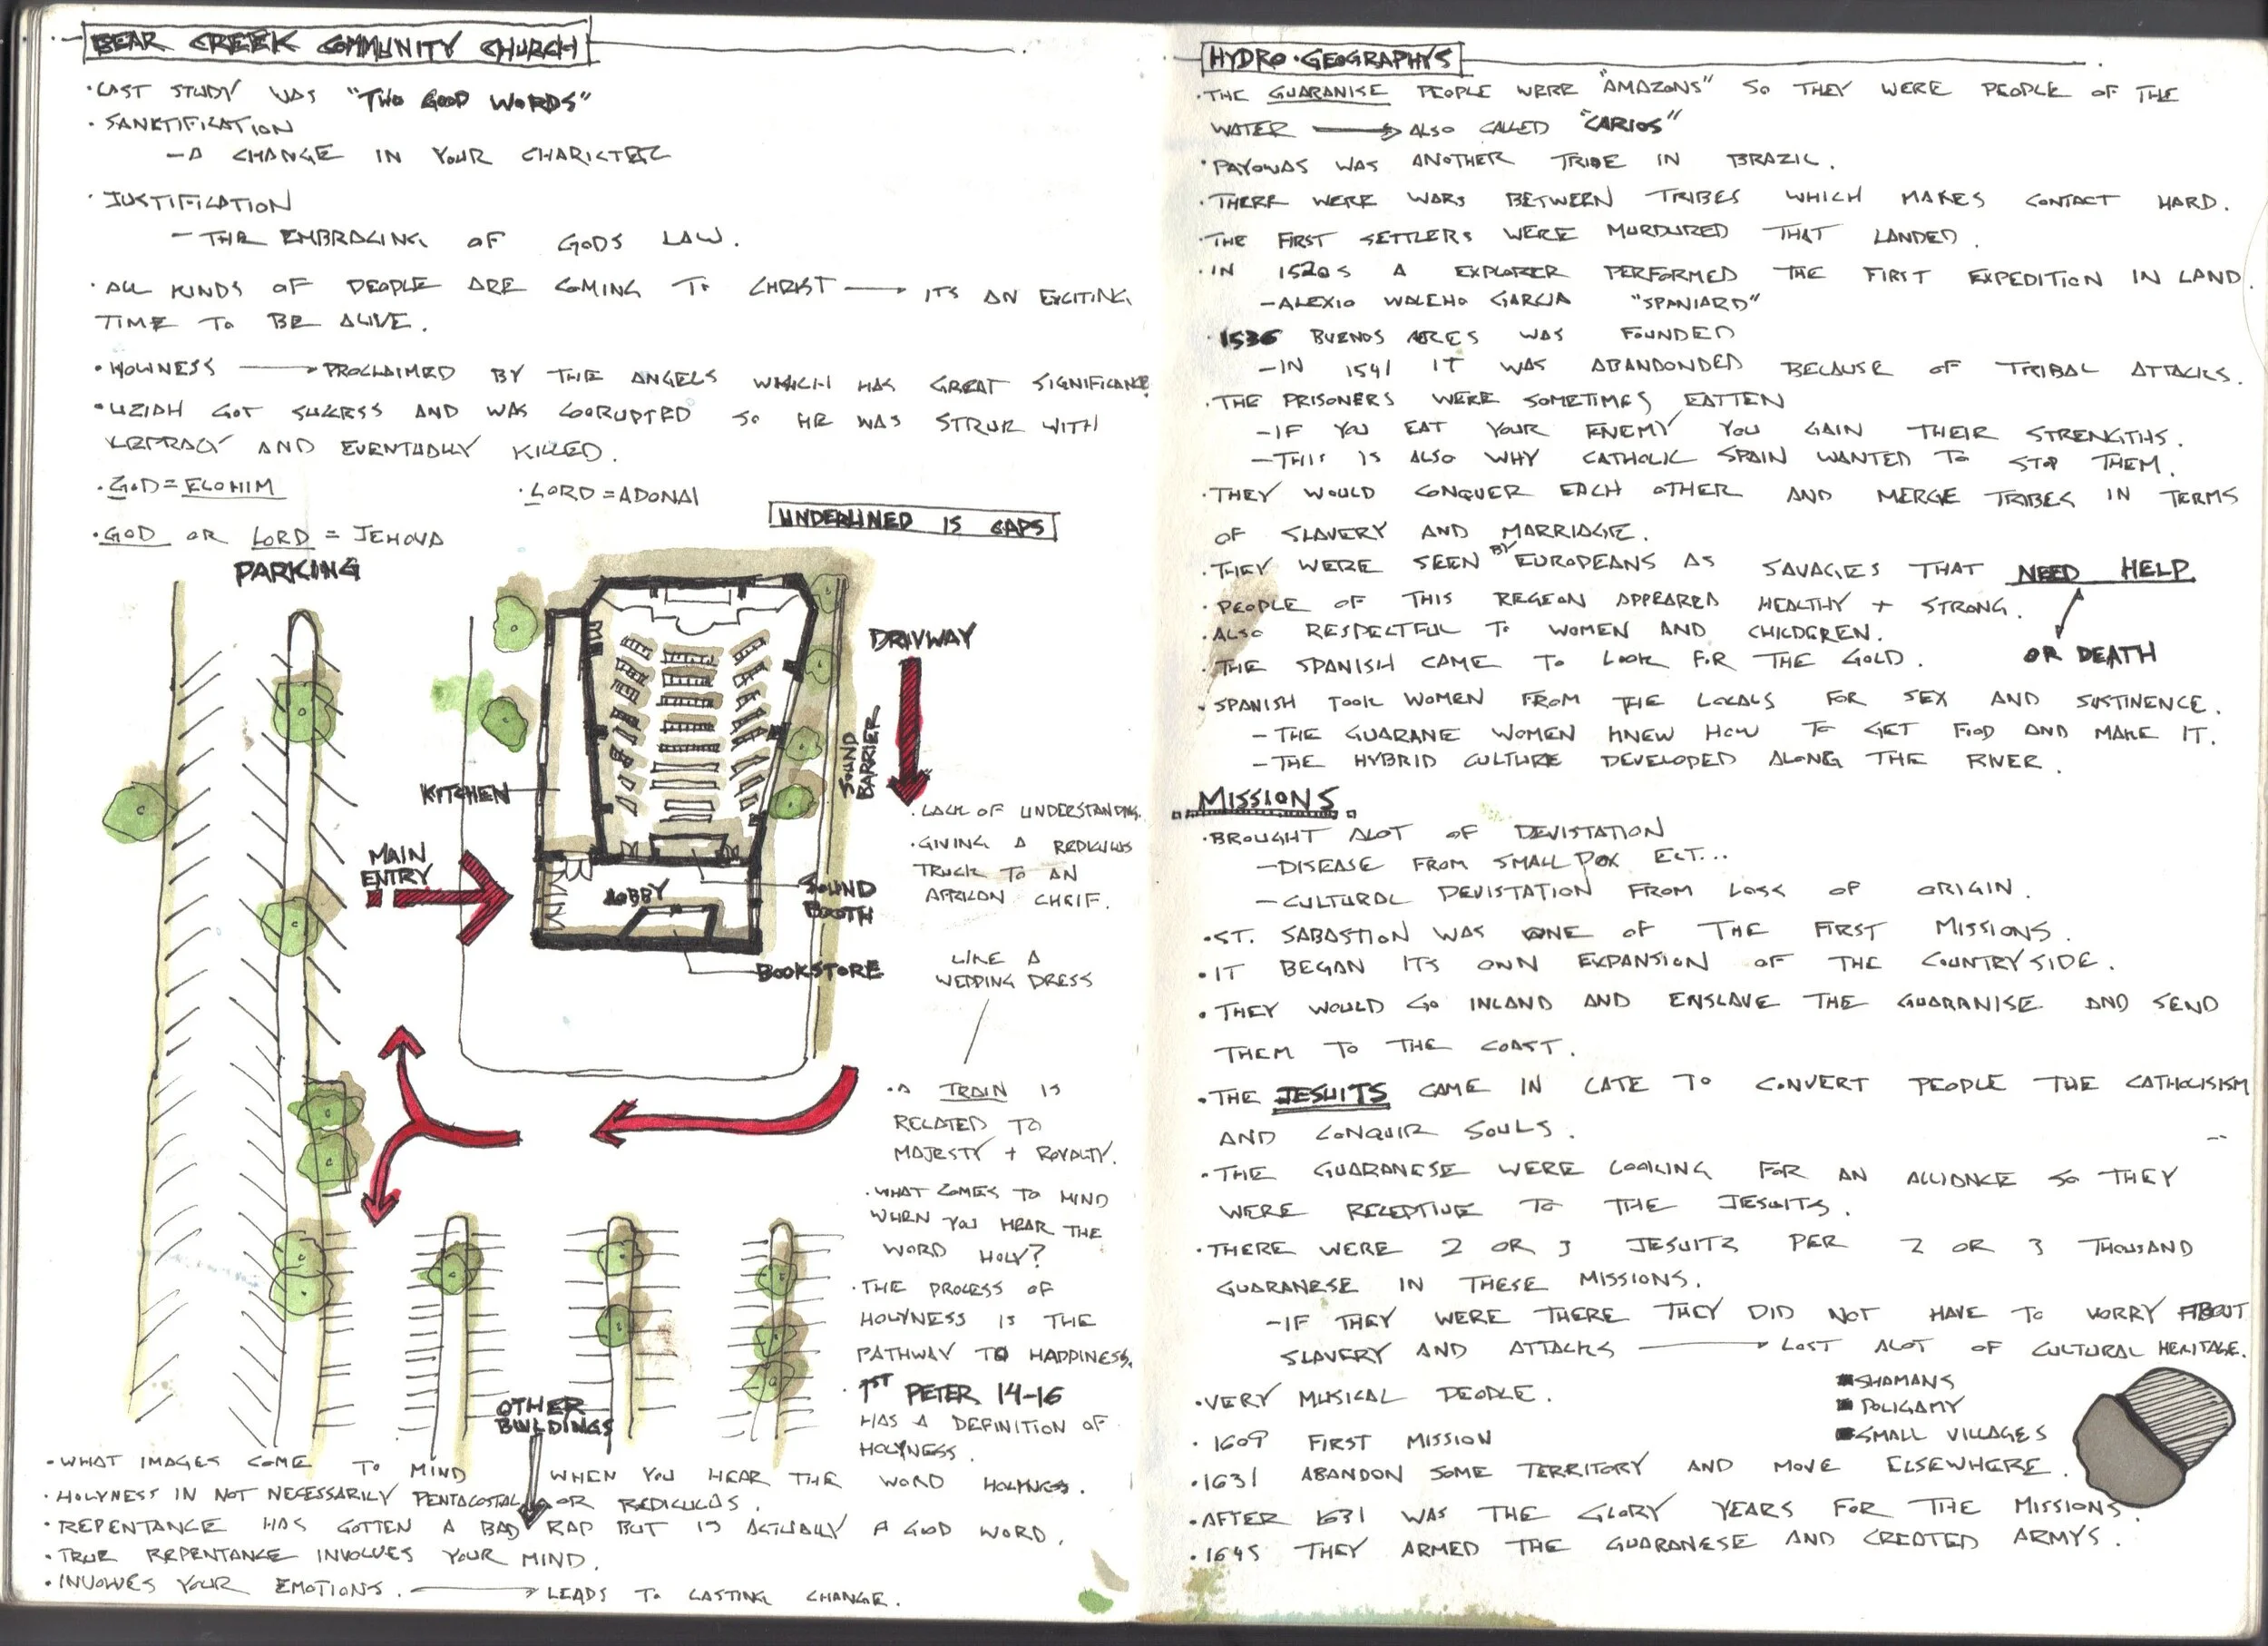 BEAR CREEK COMMUNITY CHURCH
·LAST STUDY WAS "TWO GOOD WORDS"
·SANKTIFICATION
-A CHANGE IN YOUR CHARICTER
·JUSTIFICATION
-THE EMBRACING OF GODS LAW.
·ALL KINDS OF PEOPLE ARE COMING TO CHRIST → ITS AN EXCITING
TIME TO BE ALIVE.
·HOLINESS → PROCLAIMED BY THE ANGELS WHICH HAS GREAT SIGNIFICANCE
·UZIAH GOT SUKESS AND WAS CORRUPTED SO HE WAS STRUK WITH
LEPRACY AND EVENTUALLY KILLED.
·GOD=ELOHIM ·LORD=ADONAI
UNDERLINED IS CAPS
·GOD OR LORD = JEHOVA
PARKING
DRIVWAY
SOUND
BARRIER
KITCHEN
MAIN
ENTRY
LOBBY
SOUND
BOOTH
BOOKSTORE
·LACK OF UNDERSTANDING.
·GIVING A REDICULUS
TRUCK TO AN
AFRICAN CHEIF.
LIKE A
WEDDING DRESS
·A TRAIN IS
RELATED TO
MAJESTY + ROYALTY.
·WHAT COMES TO MIND
WHEN YOU HEAR THE
WORD HOLY?
·THE PROCESS OF
HOLYNESS IS THE
PATHWAY TO HAPPINESS.
·1ST PETER 14-16
HAS A DEFINITION OF
HOLYNESS.
OTHER
BUILDINGS
·WHAT IMAGES COME TO MIND WHEN YOU HEAR THE WORD HOLYNESS.
·HOLYNESS IN NOT NECESSARILY PENTACOSTAL OR REDICULUS.
·REPENTANCE HAS GOTTEN A BAD RAP BUT IS ACTUALLY A GOOD WORD.
·TRUE REPENTANCE INVOLVES YOUR MIND.
·INVOLVES YOUR EMOTIONS. → LEADS TO LASTING CHANGE.
HYDRO·GEOGRAPHYS
·THE GUARANISE PEOPLE WERE "AMAZONS" SO THEY WERE PEOPLE OF THE
WATER → ALSO CALLED "CARIOS"
·PAYOWAS WAS ANOTHER TRIBE IN BRAZIL.
·THERE WERE WARS BETWEEN TRIBES WHICH MAKES CONTACT HARD.
·THE FIRST SETTLERS WERE MURDURED THAT LANDED.
·IN 1520s A EXPLORER PERFORMED THE FIRST EXPEDITION IN LAND.
-ALEXIO WALEHO GARCIA "SPANIARD"
·1536 BUENOS ARES WAS FOUNDED
-IN 1541 IT WAS ABANDONDED BECAUSE OF TRIBAL ATTACKS.
·THE PRISONERS WERE SOMETIMES EATTEN
-IF YOU EAT YOUR ENEMY YOU GAIN THEIR STRENGTHS.
-THIS IS ALSO WHY CATHOLIC SPAIN WANTED TO STOP THEM.
·THEY WOULD CONQUER EACH OTHER AND MERGE TRIBES IN TERMS
OF SLAVERY AND MARRIAGE.
·THEY WERE SEEN BY EUROPEANS AS SAVAGES THAT NEED HELP
·PEOPLE OF THIS REGEON APPEARED HEALTHY + STRONG.
·ALSO RESPECTFUL TO WOMEN AND CHILDGREN.
OR DEATH
·THE SPANISH CAME TO LOOK FOR THE GOLD.
·SPANISH TOOK WOMEN FROM THE LOCALS FOR SEX AND SUSTINENCE.
-THE GUARANE WOMEN KNEW HOW TO GET FOOD AND MAKE IT.
-THE HYBRID CULTURE DEVELOPED ALONG THE RIVER.
MISSIONS
·BROUGHT ALOT OF DEVISTATION
-DISEASE FROM SMALL POX ECT...
-CULTURAL DEVISTATION FROM LOSS OF ORIGIN.
·ST. SABASTION WAS ONE OF THE FIRST MISSIONS.
·IT BEGAN ITS OWN EXPANSION OF THE COUNTRYSIDE.
·THEY WOULD GO INLAND AND ENSLAVE THE GUARANISE AND SEND
THEM TO THE COAST.
·THE JESUITS CAME IN LATE TO CONVERT PEOPLE THE CATHOLISISM
AND CONQUIR SOULS.
·THE GUARANESE WERE LOOKING FOR AN ALLIANCE SO THEY
WERE RECEPTIVE TO THE JESUITS.
·THERE WERE 2 OR 3 JESUITS PER 2 OR 3 THOUSAND
GUARANESE IN THESE MISSIONS.
-IF THEY WERE THERE THEY DID NOT HAVE TO WORRY ABOUT
SLAVERY AND ATTACKS → LOST ALOT OF CULTURAL HERITAGE.
■SHAMANS
·VERY MUSICAL PEOPLE.
■POLIGAMY
■SMALL VILLAGES
·1609 FIRST MISSION
·1631 ABANDON SOME TERRITORY AND MOVE ELSEWHERE.
·AFTER 1631 WAS THE GLORY YEARS FOR THE MISSIONS.
·1645 THEY ARMED THE GUARANESE AND CREATED ARMYS.